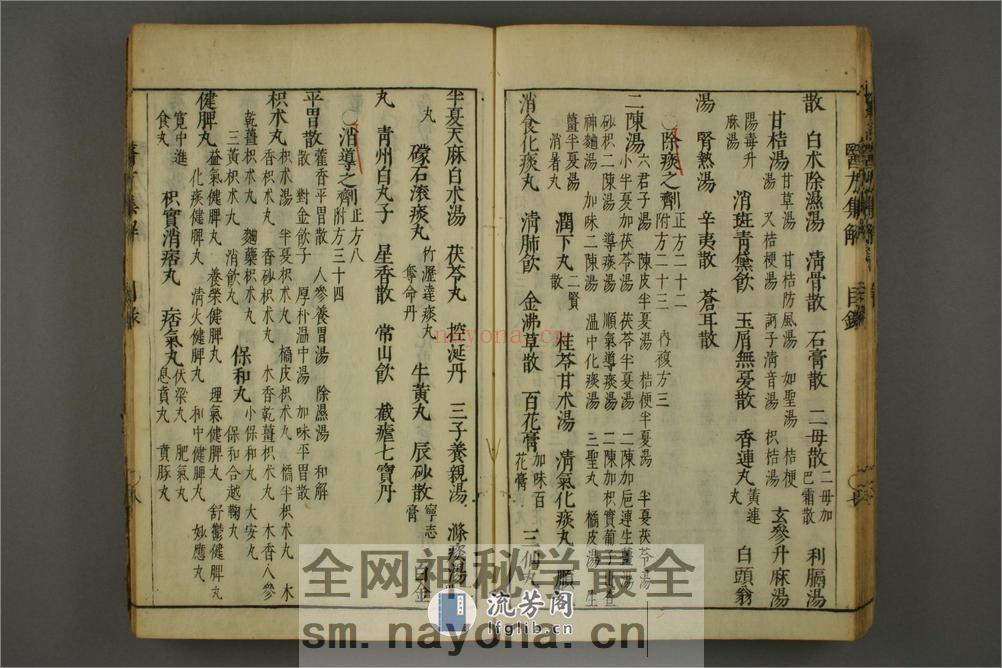 散　白术除濕湯　清骨散　石膏散　二母散二母加巴霜散　利膈湯
甘桔湯甘草湯　甘桔防風湯　如聖湯　桔梗湯　又桔梗湯　訶子清音湯　枳桔湯　玄參升麻湯
陽毒升麻湯　消斑青黛飲　玉屑無憂散　香連丸黃連丸　白頭翁
湯　腎熱湯　辛夷散　蒼耳散
〇除痰之劑正方二十二　附方二十三　內複方三
二陳湯六君子湯　陳皮半夏湯　桔梗半夏湯　半夏茯苓湯
小半夏加茯苓湯　茯苓半夏湯　二陳加梔連生薑湯
砂枳二陳湯　導痰湯　順氣導痰湯　二陳加枳實
神麯湯　加味二陳湯　溫中化痰湯　三聖丸　橘皮湯　生
薑半夏湯　消暑丸　潤下丸二賢散　桂苓甘术湯　清氣化痰丸　順
消食化痰丸　清肺飲　金沸草散　百花膏加味百花膏　三仙丸
醫方集解　目錄
半夏天麻白术湯　茯苓丸　控涎丹　三子養親湯　滌痰湯
丸　礞石滾痰丸竹瀝達痰丸　奪命丹　牛黃丸　辰砂散寧志膏　白金
丸　青州白丸子　星香散　常山飲　截瘧七寶丹
〇消導之劑正方八　附方三十四
平胃散藿香平胃散　人參養胃湯　除濕湯　和解
散　對金飲子　厚朴溫中湯　加味平胃散
枳术丸枳术湯　半夏枳术丸　橘皮枳术丸　橘半枳术丸　木
香枳术丸　香砂枳术丸　木香乾薑枳术丸　木香人參
乾薑枳术丸　麴蘗枳术丸　大安丸
三黃枳术丸　消飲丸　保和丸小保和丸　保和合越鞠丸
健脾丸益氣健脾丸　養榮健脾丸　理氣健脾丸　舒鬱健脾丸
化痰健脾丸　清火健脾丸　和中健脾丸　妙應丸
寬中進食丸　枳實消痞丸　痞氣丸伏梁丸　肥氣丸　息賁丸　賁豚丸
nayona.cn
全网神秘学最全
流芳阁
lfglib.cn
sm.nayona.cn